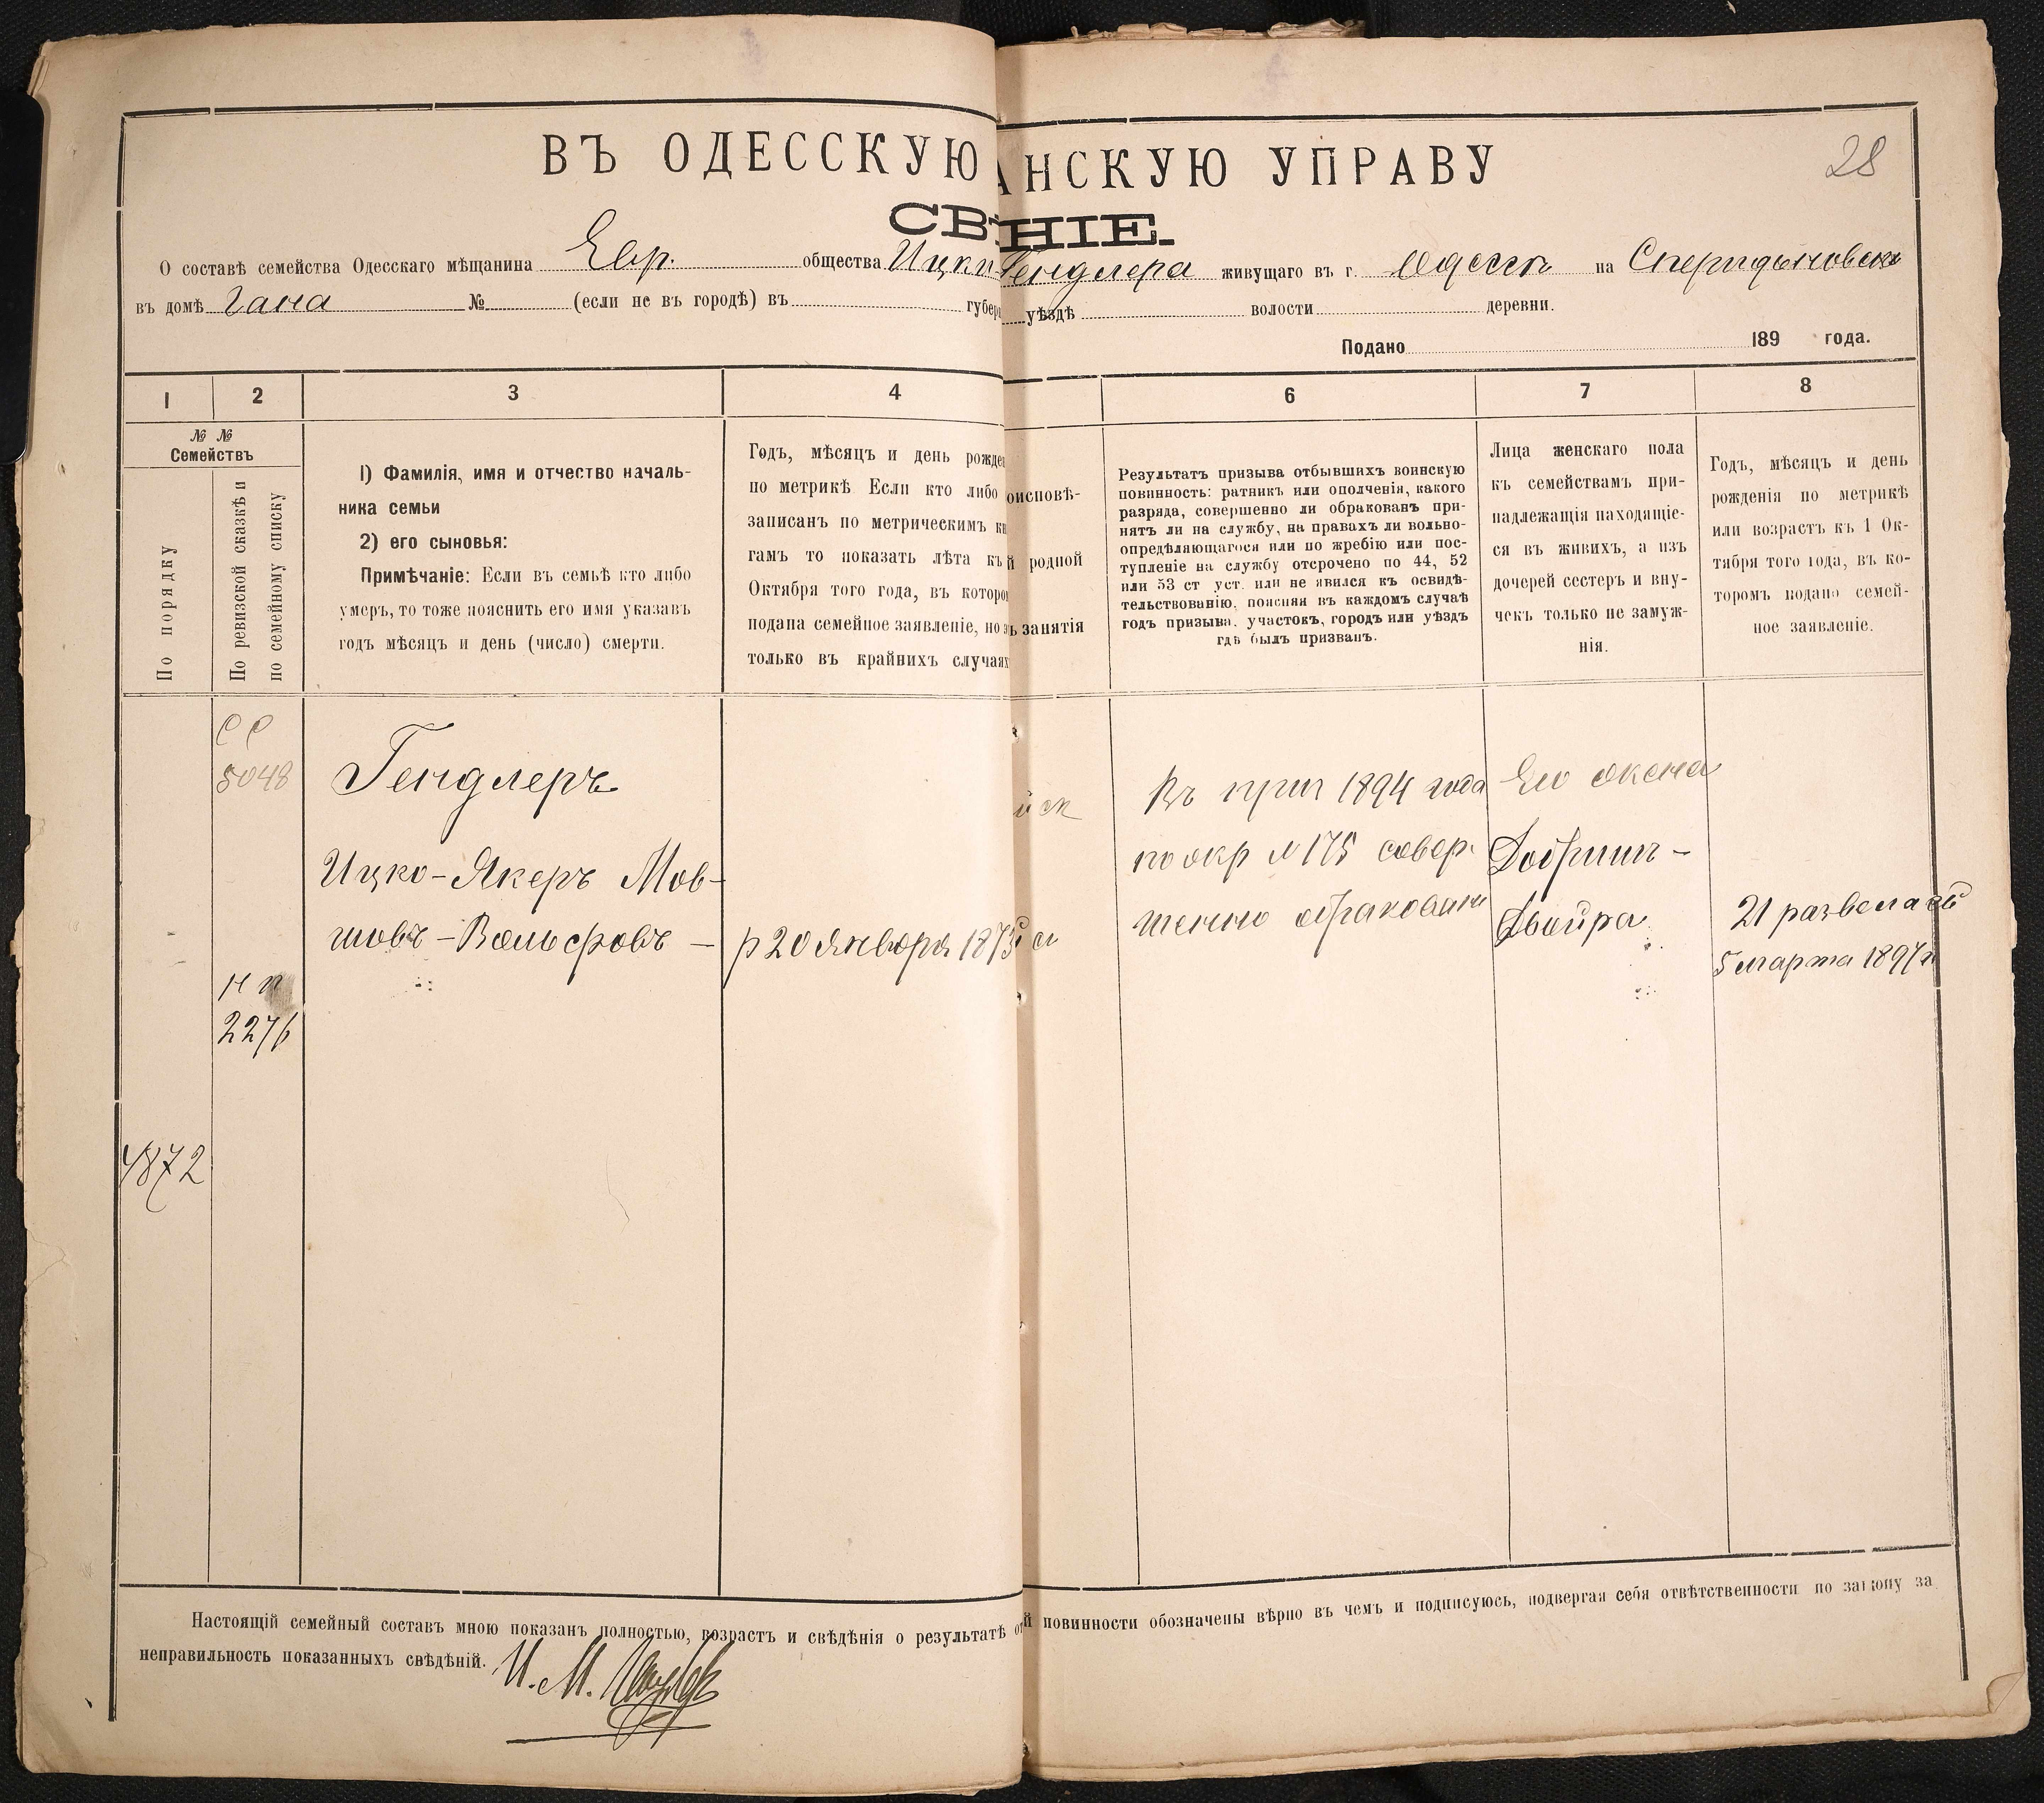 ВЪ ОДЕССКУЮ АНСКУЮ УПРАВУ
28
СВѢНІЕ.
О составѣ семейства Одесскаго мѣщанина Евр. общества Ицки Гендлера живущаго въ г. Одессѣ на
въ домѣ Гана № (если не въ городѣ) въ губер уѣздѣ волости деревни.
Подано 189 года.
1 2 3 4 6 7 8
№ №
Семействъ
По порядку
По ревизской сказкѣ и
по семейному списку
1) Фамилія, имя и отчество началь-
ника семьи
2) его сыновья:
Примѣчаніе: Если въ семьѣ кто либо
умеръ, то тоже пояснить его имя указавъ
годъ мѣсяцъ и день (число) смерти.
Годъ, мѣсяцъ и день рожде
по метрикѣ Если кто либо
записанъ по метрическимъ кн
гамъ то показать лѣта къ
Октября того года, въ которо
подана семейное заявленіе, но э
только въ крайнихъ случаях
оисповѣ-
й родной
ъ занятія
Результатъ призыва отбывшихъ воинскую
повинность: ратникъ или ополченія, какого
разряда, совершенно ли обракованъ при-
нятъ ли на службу, на правахъ ли вольно-
опредѣляющагося или по жребію или пос-
тупленіе на службу отсрочено по 44, 52
или 53 ст уст. или не явился къ освидѣ-
тельствованію, поясняя въ каждомъ случаѣ
годъ призыва, участокъ, городъ или уѣздъ
гдѣ былъ призванъ.
Лица женскаго пола
къ семействамъ при-
надлежащія находящіе-
ся въ живихъ, а изъ
дочерей сестеръ и вну-
чекъ только не замуж-
нія.
Годъ, мѣсяцъ и день
рожденія по метрикѣ
или возрастъ къ 1 Ок-
тября того года, въ ко-
торомъ подано семей-
ное заявленіе.
С С
5048
Гендлеръ
Ицко-Якеръ Мов-
шовъ-Вольфовъ —
р 20 января 1873
йск
Въ приз 1894 года
по окр № 175 совер-
шенно обракованъ
Его жена
Двойра
21 развелась
5 марта 1897 г
н п
2276
4872
Настоящій семейный составъ мною показанъ полностью, возрастъ и свѣдѣнія о результатѣ от й повинности обозначены вѣрно въ чемъ и подписуюсь, подвергая себя отвѣтственности по закону за
неправильность показанныхъ свѣдѣній.
И. М.